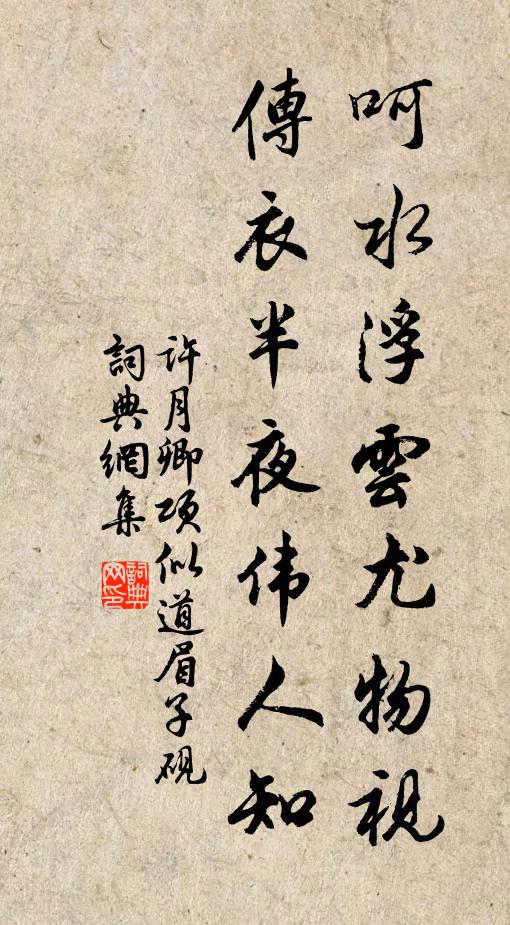 呵水浮雲尤物視
傳衣半夜伟人知
許月卿項似道眉子硯
詞典網集
詞典网印